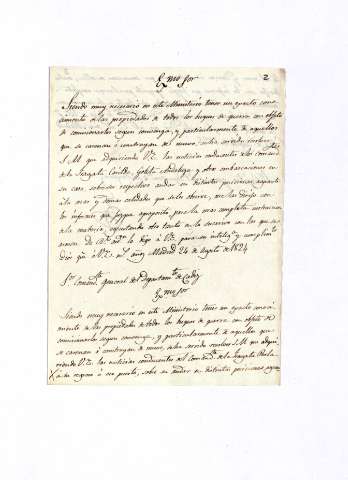 Exmo Sor
2
Siendo muy necesario en este Ministerio tener un exacto cono-
cimiento de las propiedades de todos los buques de guerra con objeto
de comisionarlos segun convenga, y particularmente de aquellos
que se carenan ó construyan de nuevo,
S. M. que adquiriendo V.E. las noticias conducentes de los
de la Fragata Goleta y otras embarcaciones en
su caso, sobre su respectivo andar en distintas posiciones, aguante
á la mar y demas calidades que deba observar, me las dirija con
los informes que juzgue oportunos para la mas completa instruccion
de la materia, ejecutando otro tanto en lo sucesivo con los que se
De Rl. orden lo digo á V.E. para su inteligª y cumplimto
Dios gue á V.E. ms. años Madrid 24 de Agosto de 1824
Sor Comandte general del Departamto de Cadiz
Exmo Sor
Siendo muy necesario en este Ministerio tener un exacto conoci-
miento de las propiedades de todos los buques de guerra con objeto de
comisionarlos segun convenga, y particularmente de aquellos que
se carenan ó construyan de nuevo, se ha servido resolver S. M. que adqui-
riendo V.E. las noticias conducentes del Comandte de la Fragata
á su regreso á ese puerto, sobre su andar en distintas posiciones, segun